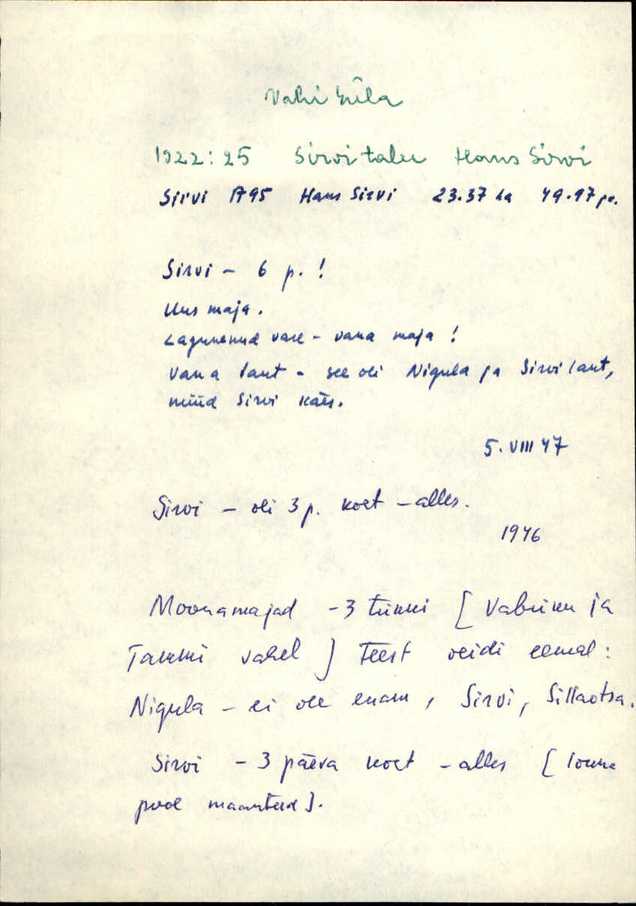 Vahi küla
1922:25 Sirvi talu Hans Sirvi
Sirvi A795 Hans Sirvi 23.37 ha 49.97 pr.
Sirvi - 6 p. !
Uus maja.
Lagunenud vare - vana maja !
Vana laut - see oli Nigula ja Sirvi laut,
nüüd Sirvi käes.
5. VIII 47
Sirvi - oli 3 p. koct - alles.
1946
Moonamajad - 3 tükki [ Vabriku ja
Tammi vahel ] Teest veidi eemal :
Nigula - ei ole enam, Sirvi, Sillaotsa.
Sirvi - 3 päeva koct - alles [ louna
pool maanteed ].